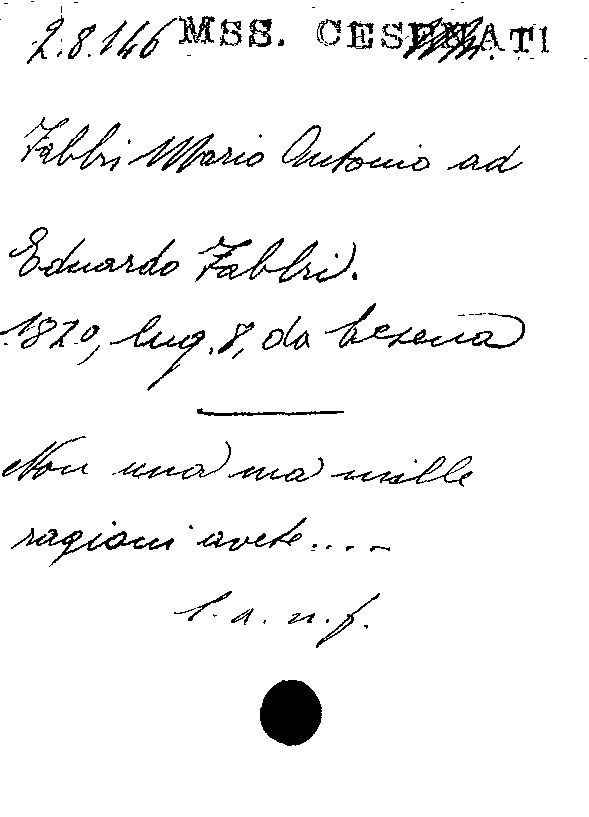 2.8.146 MSS. CESENATI
Fabbri Mario Antonio ad
Eduardo Fabbri.
1820, lug. 8, da Cesena
Non una ma mille
ragioni avete....
l. a. n. f.